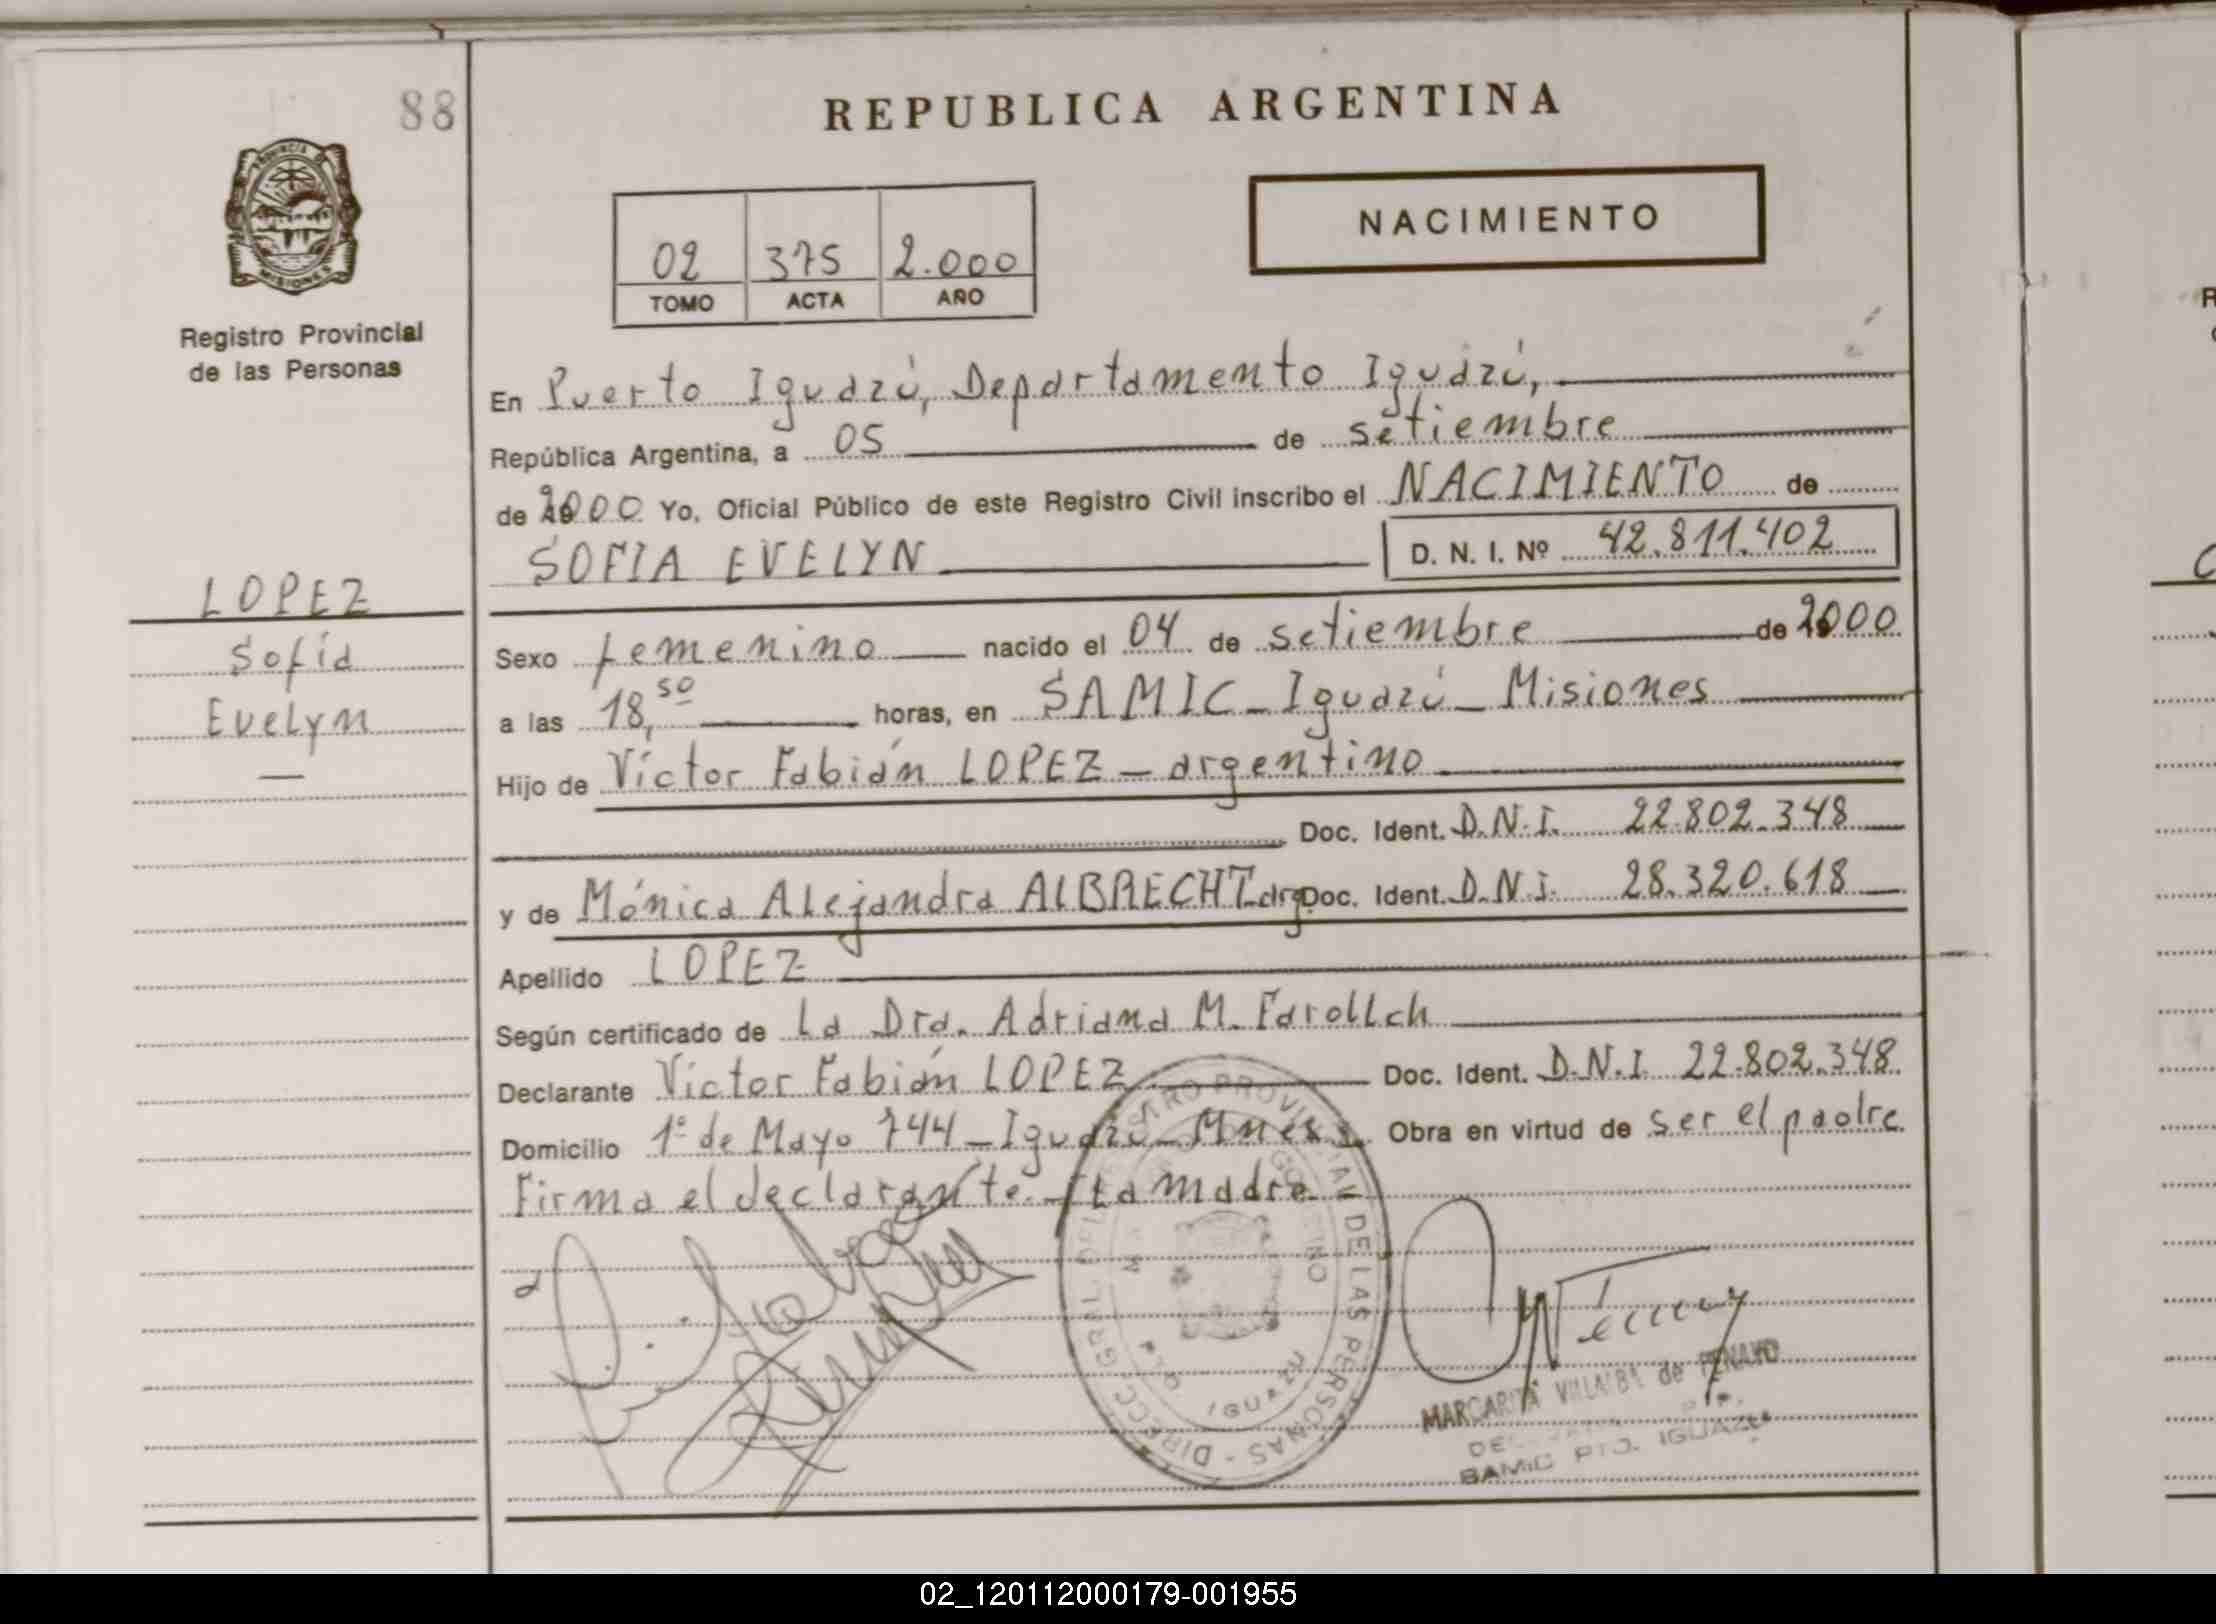 88
REPUBLICA ARGENTINA
PROVINCIA D
MISIONES
NACIMIENTO
02 375 2.000
TOMO ACTA AÑO
Registro Provincial
de las Personas
En Puerto Iguazú, Departamento Iguazú,
República Argentina, a 05 de setiembre
de 2000 Yo, Oficial Público de este Registro Civil inscribo el NACIMIENTO de
SOFIA EVELYN D. N. I. Nº 42.811.402
LOPEZ
Sofía
Evelyn
Sexo femenino nacido el 04 de setiembre de 2000
a las 18,50 horas, en SAMIC - Iguazú - Misiones
Hijo de Víctor Fabián LOPEZ - argentino
Doc. Ident. D.N.I. 22.802.348
y de Mónica Alejandra ALBRECHT-arg. Doc. Ident. D.N.I. 28.320.618
Apellido LOPEZ
Según certificado de La Dra. Adriana M. Farollch
Declarante Víctor Fabián LOPEZ Doc. Ident. D.N.I. 22.802.348
Domicilio 1º de Mayo 744 - Iguazú - Mnes. Obra en virtud de ser el padre
Firma el declarante y la madre
DIRECC. GRAL. DEL REGISTRO PROVINCIAL DE LAS PERSONAS
IGUAZU
MARGARITA VILLALBA de PENAYO
SAMIC PTO. IGUAZU
02_120112000179-001955